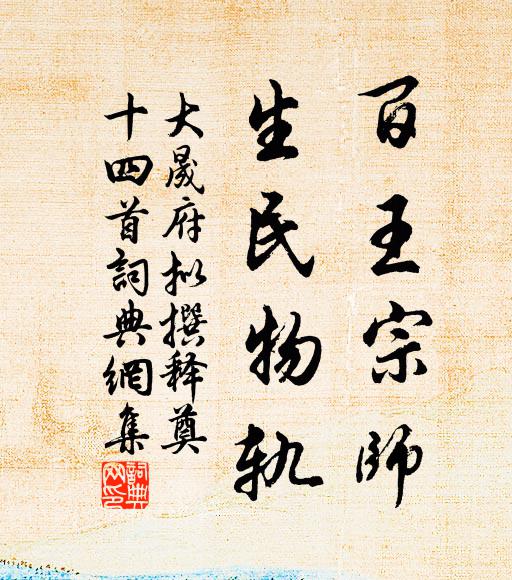 百王宗師
生民物軌
大晟府拟撰释奠
十四首詞典網集
詞典网印